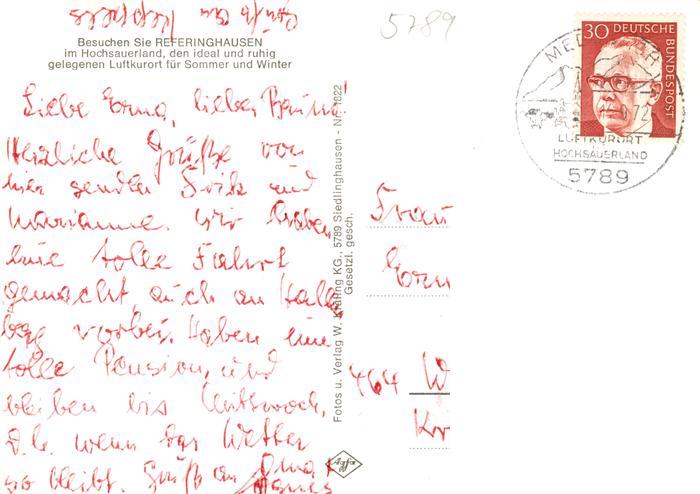 Gruß an Keppels
5789
Besuchen Sie REFERINGHAUSEN
im Hochsauerland, den ideal und ruhig
gelegenen Luftkurort für Sommer und Winter
Liebe Erna, lieber
Herzliche Grüße von
hier senden Fritz und
Marianne. Wir haben
eine tolle Fahrt
gemacht, auch an Kalle
vorbei. Haben eine
tolle Pension, und
bleiben bis Mittwoch,
d.h. wenn das Wetter
so bleibt. Gruß an Oma
Fotos u. Verlag W. KG., 5789 Siedlinghausen - Nr. 1822
Gesetzl. gesch.
Agfa
30 DEUTSCHE BUNDESPOST
LUFTKURORT
HOCHSAUERLAND
5789
Frau
Ern
464 W
Kr